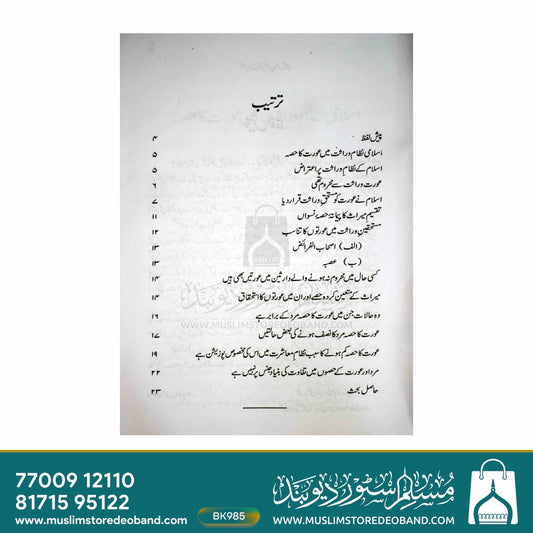 ترتیب
پیش لفظ ۴
اسلامی نظام وراثت میں عورت کا حصہ ۵
اسلام کے نظام وراثت پر اعتراض ۵
عورت وراثت سے محروم تھی ۶
اسلام نے عورت کو مستحق وراثت قرار دیا ۷
تقسیم میراث کا پیمانہ حصۂ نسواں ۱۱
مستحقین وراثت میں عورتوں کا تناسب ۱۲
(الف) اصحاب الفرائض ۱۳
(ب) عصبہ ۱۳
کسی حال میں محروم نہ ہونے والے وارثین میں عورتیں بھی ہیں ۱۴
میراث کے متعین کردہ حصے اور ان میں عورتوں کا استحقاق ۱۴
وہ حالات جن میں عورت کا حصہ مرد کے برابر ہے ۱۶
عورت کا حصہ مرد کا نصف ہونے کی بعض حالتیں ۱۷
عورت کا حصہ کم ہونے کا سبب نظام معاشرت میں اس کی مخصوص پوزیشن ہے ۱۹
مرد اور عورت کے حصوں میں تفاوت کی بنیاد جنس پر نہیں ہے ۲۲
حاصل بحث ۲۳
WWW.MUSLIMSTOREDEOBAND.COM
77009 12110
81715 95122
www.muslimstoredeoband.com
BK985
مسلم سٹور دیوبند
WWW.MUSLIMSTOREDEOBAND.COM